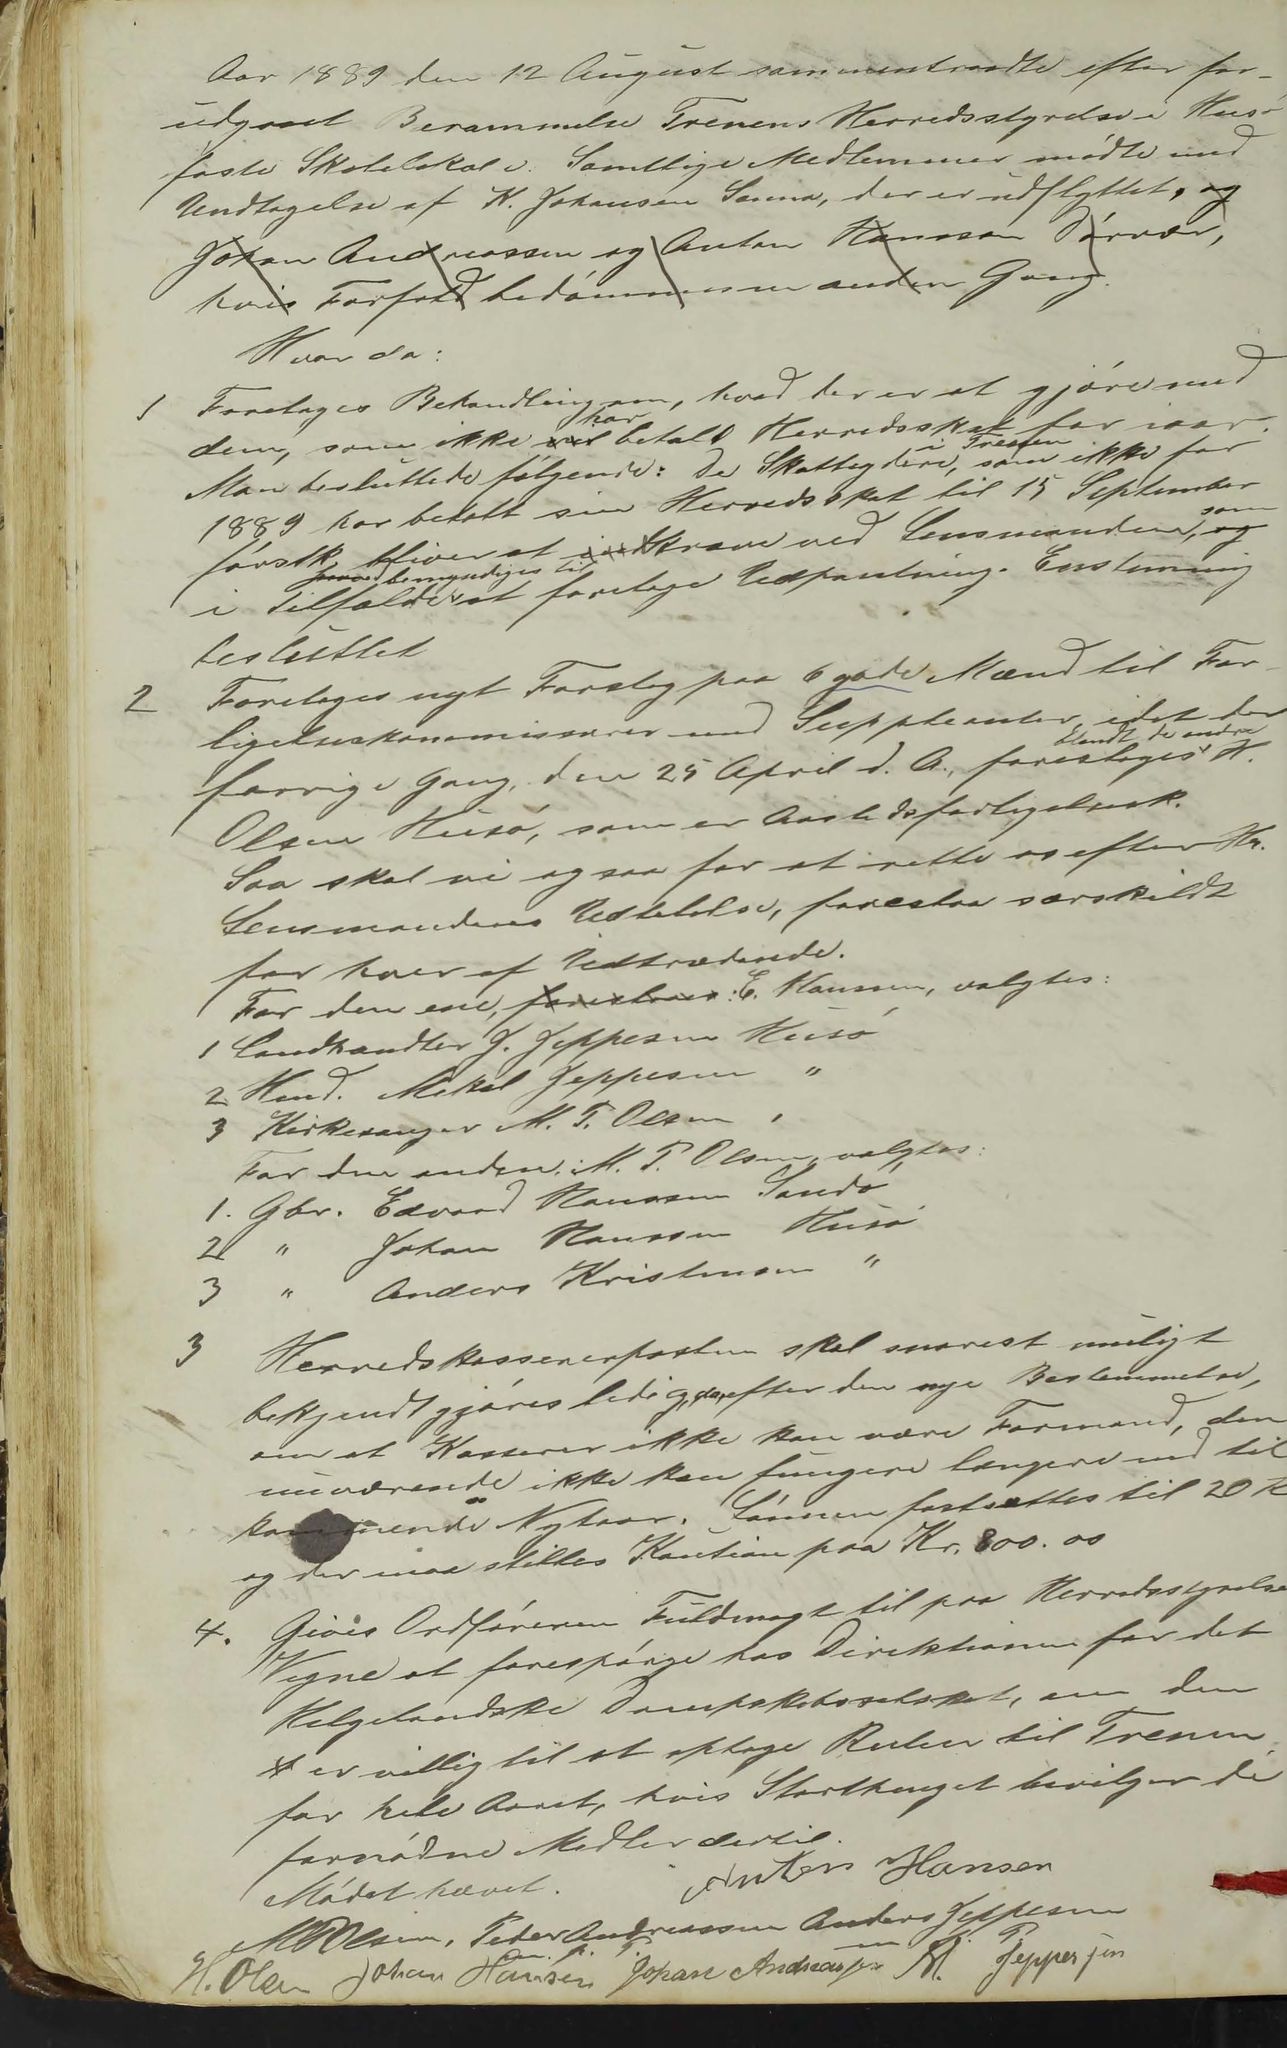 Aar 1889 den 12 August sammentraadte efter for-
udgaaet Berammelse Trenens Herredsstyrelse i Husø
faste Skolelokale. Samtlige Medlemmer mødte med
Undtagelse af K. Johansen Sanna, der er udflyttet, og
Johan Andreassen og Anton Hanssen Dørvær,
hvis Forfald bedømmes en anden Gang.
Hvor da:
1 Foretages Behandling om, hvad der er at gjøre med
dem, som ikke har betalt Herredsskat for iaar.
Man besluttede følgende: De Skatteydere i Trenen, som ikke for
1889 har betalt sin Herredsskat til 15 September
førstk. bliver at kræve ved Lensmanden, som
i Tilfælde bemyndiges til at foretage Udpantning. Enstemmig
besluttet
2 Foretages nyt Forslag paa 6 gode Mænd til For-
ligelseskommissærer med Suppleanter, idet der
forrige Gang, den 25 April d. A., foresloges blandt de andre H.
Olsen Husø, som er Aastedsforligelsesk.
Saa skal vi ogsaa for at rette os efter Hr.
Lensmandens Udtalelse, foreslaa særskildt
for hver af Udtrædende.
For den ene, foreslaaes: E. Hanssen, valgtes:
1 Landhandler J. Jeppesen Husø
2 Hand. Mikal Jeppesen "
3 Kirkesanger M. P. Olsen "
For den anden: M. P. Olsen, valgtes:
1. Gbr. Edvard Hanssen Sandø
2 " Johan Hanssen Husø
3 " Anders Kristensen "
3 Herredskassererposten skal snarest muligt
bekjendtgjøres ledig, da, efter den nye Bestemmelse,
om at Kasserer ikke kan være Formand, den
nuværende ikke kan fungere længere end til
kommende Nytaar. Lønnen fastsættes til 20 Kr
og der maa stilles Kaution paa Kr. 800.00
4. Gives Ordføreren Fuldmagt til paa Herredsstyrelsens
Vegne at forespørge hos Direktionen for det
Helgelandske Dampskibsselskab, om den
er villig til at optage Ruten til Trenen
for hele Aaret, hvis Storthinget bevilger de
fornødne Midler dertil.
Mødet hævet. Anton Hansen
M P Olsen, Peder Andreassen Anders Jeppesen
H. Olsen Johan Hansen m. p. P. Johan Andreassen M. P. Jeppesen